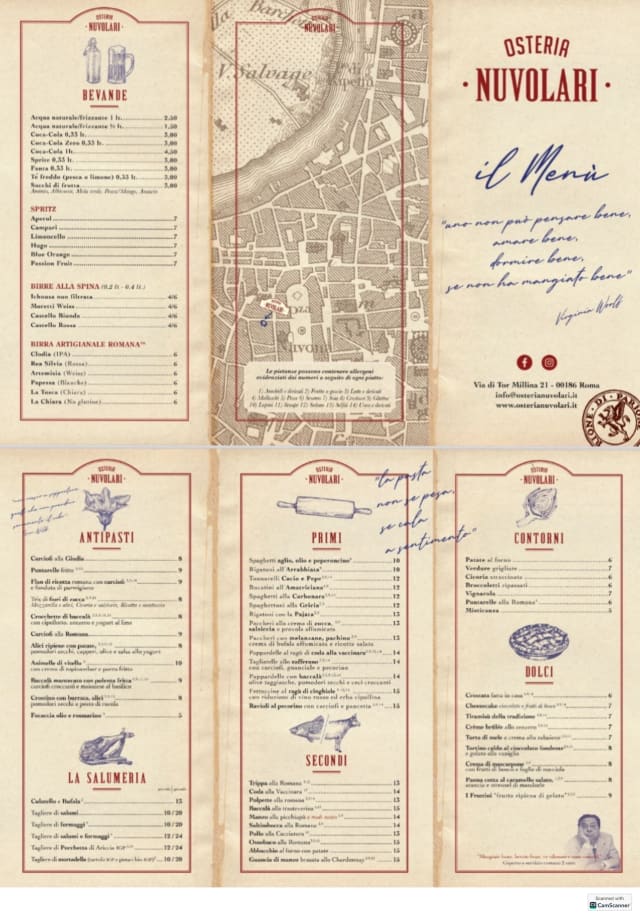 OSTERIA
NUVOLARI
BEVANDE
Acqua naturale/frizzante 1 lt. 2,50
Acqua naturale/frizzante ½ lt. 1,50
Coca-Cola 0,33 lt. 3,00
Coca-Cola Zero 0,33 lt. 3,00
Coca-Cola 1lt. 4,50
Sprite 0,33 lt. 3,00
Fanta 0,33 lt. 3,00
Té freddo (pesca o limone) 0,33 lt. 3,00
Succhi di frutta 3,00
SPRITZ
Aperol 7
Campari 7
Limoncello 7
Hugo 7
Blue Orange 7
Passion Fruit 7
BIRRE ALLA SPINA (0.2 lt - 0.4 lt.)
Ichnusa non filtrata 4/6
Moretti Weiss 4/6
Castello Bionda 4/6
Castello Rossa 4/6
BIRRA ARTIGIANALE ROMANA
Clodia (IPA) 6
Rea Silvia (Rossa) 6
Artemisia (Weiss) 6
Papessa (Blanche) 6
La Tosca (Chiara) 6
La Chiara (No glutine) 6
OSTERIA
NUVOLARI
V. Salvage
Navona
Le pietanze possono contenere allergeni
evidenziati dai numeri a seguito di ogni piatto:
OSTERIA
· NUVOLARI ·
il Menù
"uno non può pensare bene,
amare bene,
dormire bene,
se non ha mangiato bene"
Virginia Woolf
Via di Tor Millina 21 - 00186 Roma
info@osterianuvolari.it
www.osterianuvolari.it
OSTERIA
NUVOLARI
ANTIPASTI
Carciofi alla Giudia 8
Puntarelle fritte 9
Flan di ricotta romana con carciofi 9
e fonduta di parmigiano
Tris di fiori di zucca 8
Crocchette di baccalà 8
con cipollotto, zenzero e yogurt al lime
Carciofi alla Romana 9
Alici ripiene con patate, 8
pomodori secchi, capperi, olive e salsa allo yogurt
Animelle di vitello 10
Baccalà mantecato con polenta fritta 9
carciofi croccanti e maionese al basilico
Crostino con burrata, alici 8
pomodori secchi e pesto di rucola
Focaccia olio e rosmarino 5
LA SALUMERIA
Culatello e Bufala 15
Tagliere di salumi 10/20
Tagliere di formaggi 10/20
Tagliere di salumi e formaggi 12/24
Tagliere di Porchetta di Ariccia IGP 12/24
Tagliere di mortadella 10/20
OSTERIA
NUVOLARI
"la pasta
non se pesa,
se cola
a sentimento"
PRIMI
Spaghetti aglio, olio e peperoncino 10
Rigatoni all'Arrabbiata 10
Tonnarelli Cacio e Pepe 12
Bucatini all'Amatriciana 12
Spaghetti alla Carbonara 12
Spaghettoni alla Gricia 12
Rigatoni con la Pajata 13
Paccheri alla crema di zucca, 13
salsiccia e provola affumicata
Paccheri con melanzane, pachino 13
crema di bufala affumicata e ricotta salata
Pappardelle al ragù di coda alla vaccinara 14
Tagliatelle allo zafferano 14
con carciofi, guanciale e pecorino
Pappardelle con baccalà 14
olive taggiasche, pomodori secchi e ceci croccanti
Fettuccine al ragù di cinghiale 15
con riduzione di vino rosso ed erba cipollina
Ravioli al pecorino con carciofi e pancetta 15
SECONDI
Trippa alla Romana 13
Coda alla Vaccinara 14
Polpette alla romana 13
Baccalà alla trasteverina 15
Manzo alla picchiapò 14
Saltimbocca alla Romana 14
Pollo alla Cacciatora 13
Ossobuco alla Romana 15
Abbacchio al forno con patate 15
Guancia di manzo brasata allo Chardonnay 15
OSTERIA
NUVOLARI
CONTORNI
Patate al forno 6
Verdure grigliate 7
Cicoria strascinata 6
Broccoletti ripassati 6
Vignarola 7
Puntarelle alla Romana 6
Misticanza 5
DOLCI
Crostata fatta in casa 6
Cheesecake 7
Tiramisù della tradizione 7
Crème brûlée allo zenzero 7
Torta di mele e crema alla sabaiona 7
Tortino caldo al cioccolato fondente 8
e gelato alla vaniglia
Crema di mascarpone 8
con frutti di bosco e foglie di nocciola
Panna cotta al caramello salato, 8
arancia e streusel di mandorle
I Fruttini "frutta ripiena di gelato" 9
Coperto e servizio comune 2 euro
Scanned with
CamScanner